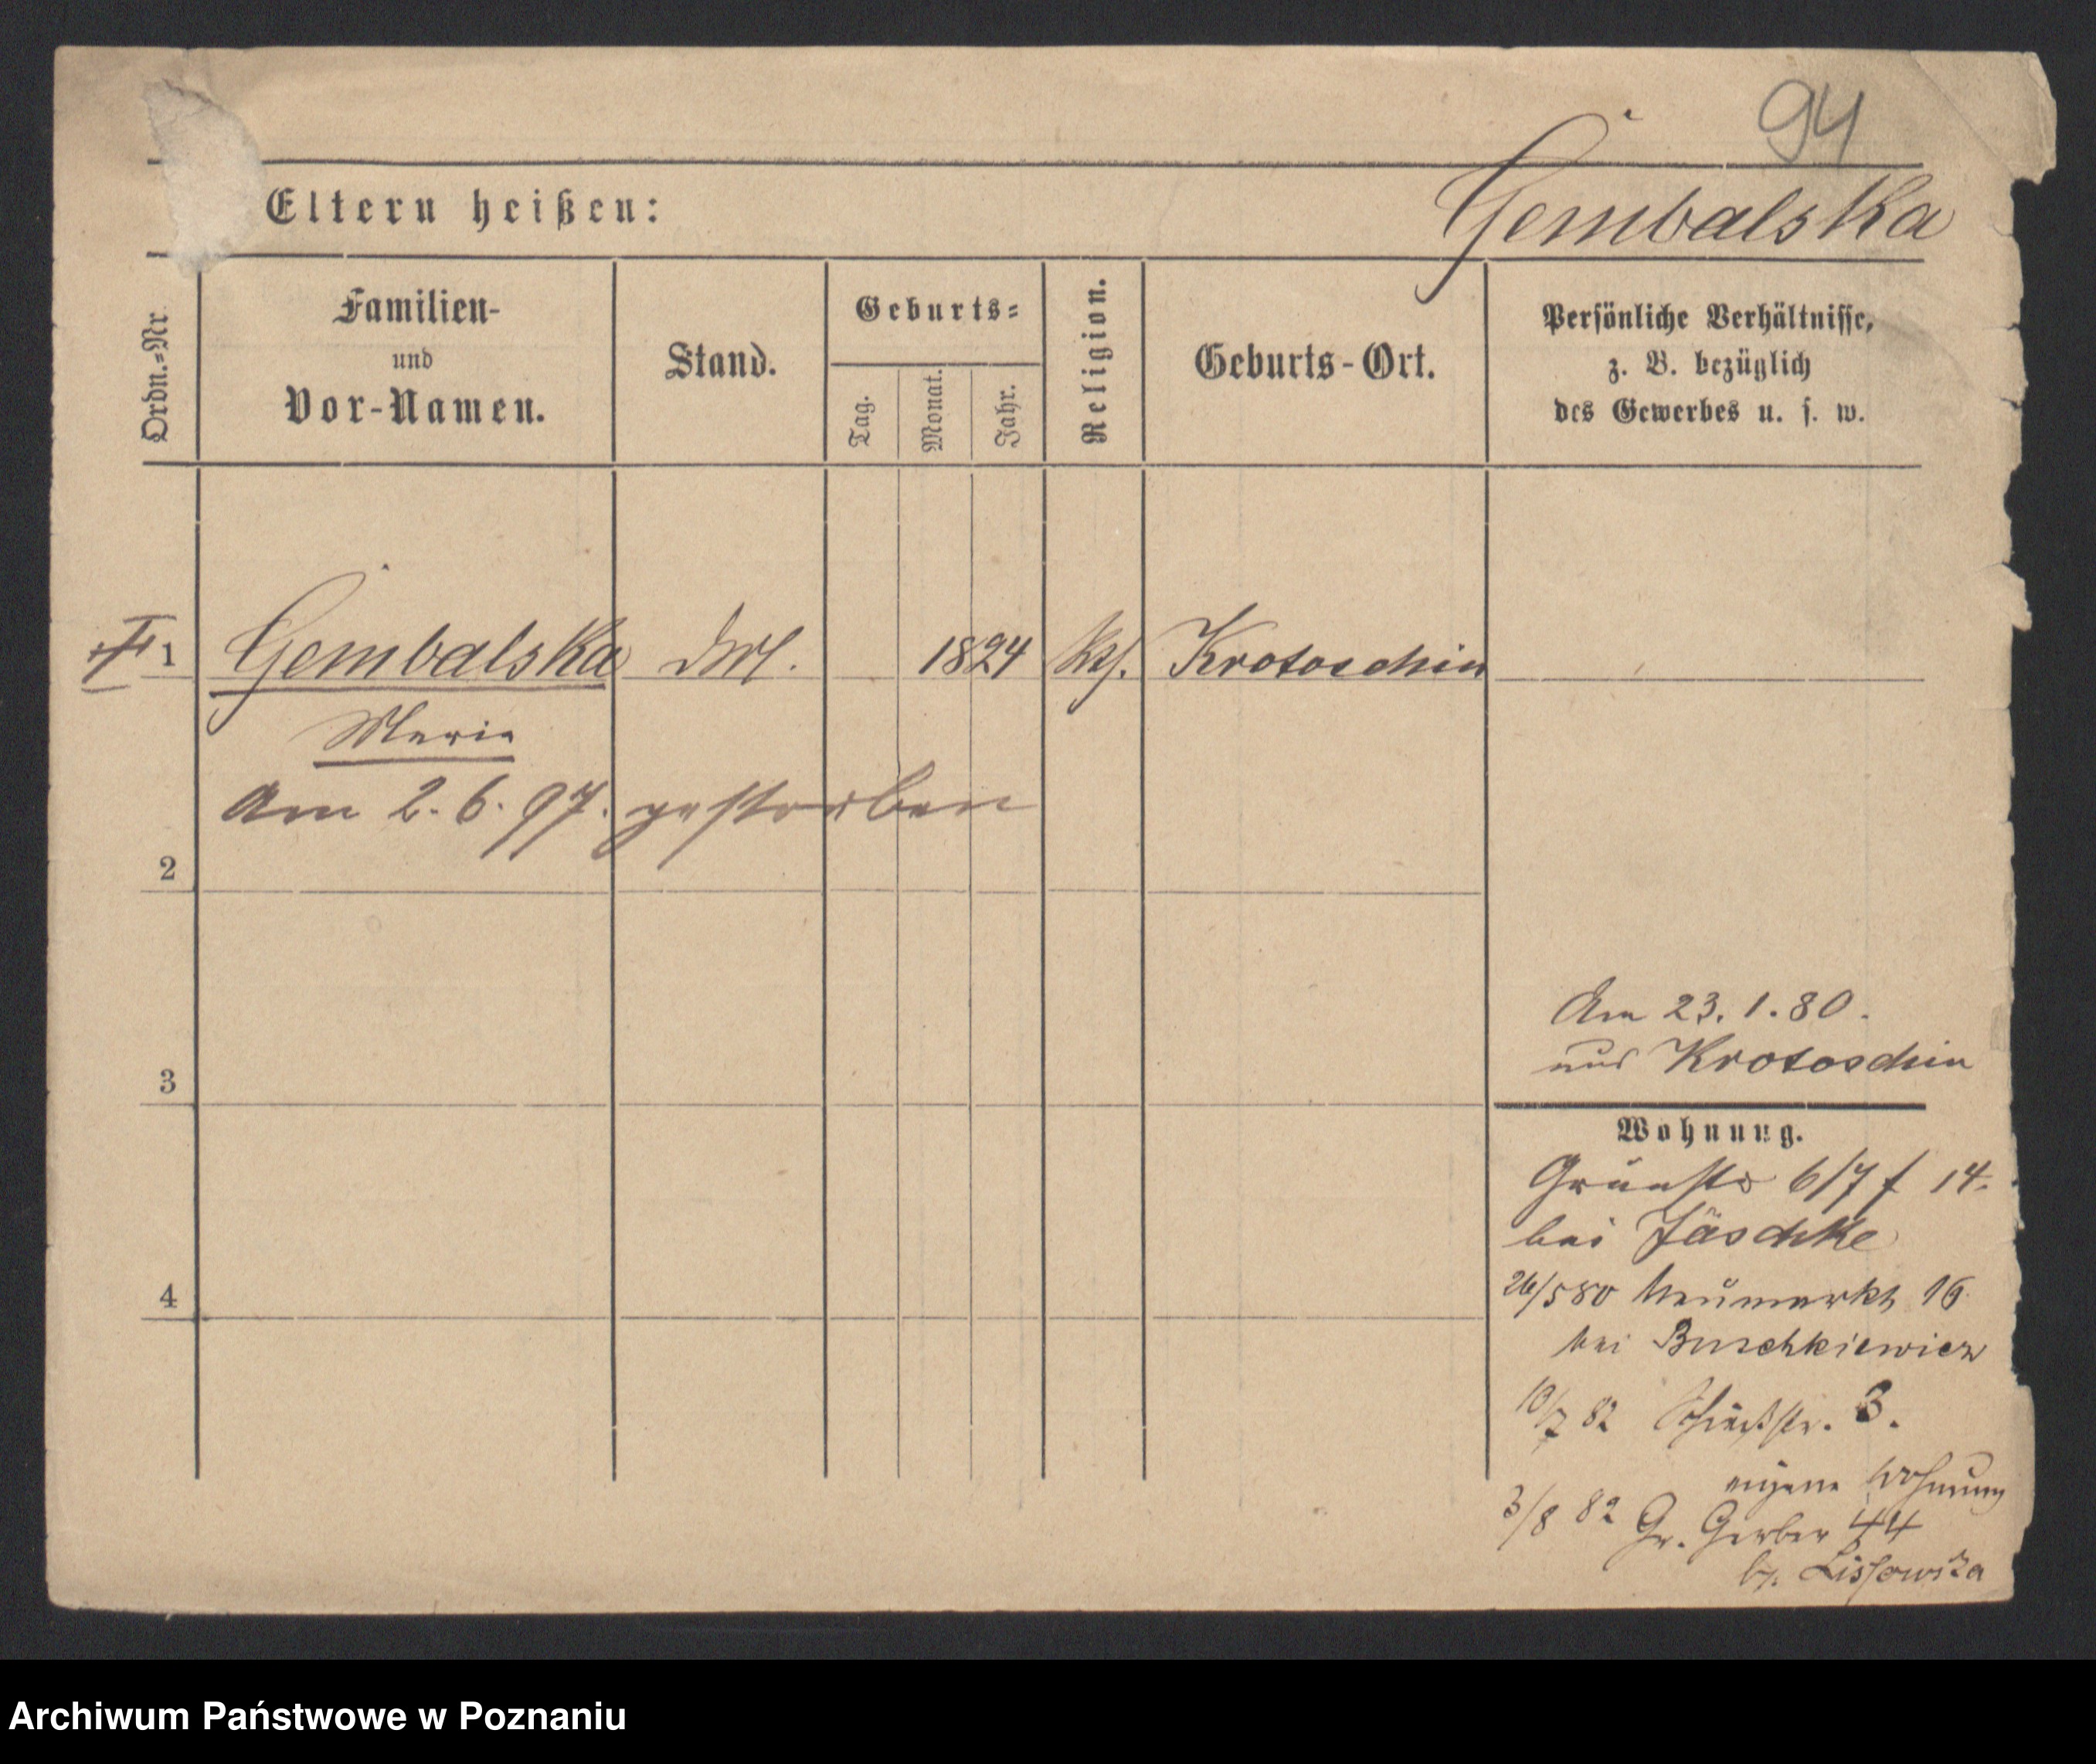 94
Eltern heißen:
Gembalska
Ordn.-Nr.
Familien-
und
Vor-Namen.
Stand.
Geburts-
Tag.
Monat.
Jahr.
Religion.
Geburts-Ort.
Persönliche Verhältnisse,
z. B. bezüglich
des Gewerbes u. s. w.
1 Gembalska 1824 kth. Krotoschin
Maria
Am 2. 6. 97. gestorben
2
Am 23. 1. 80.
aus Krotoschin
3
Wohnung.
Grünstr 6/7 14.
bei Jäschke
4
26/5 80 Neumarkt 16
bei Buschkiewicz
10/7 82 Schießstr. 3.
eigene Wohnung
3/8 82 Gr. Gerber 44
b. Lissowska
Archiwum Państwowe w Poznaniu